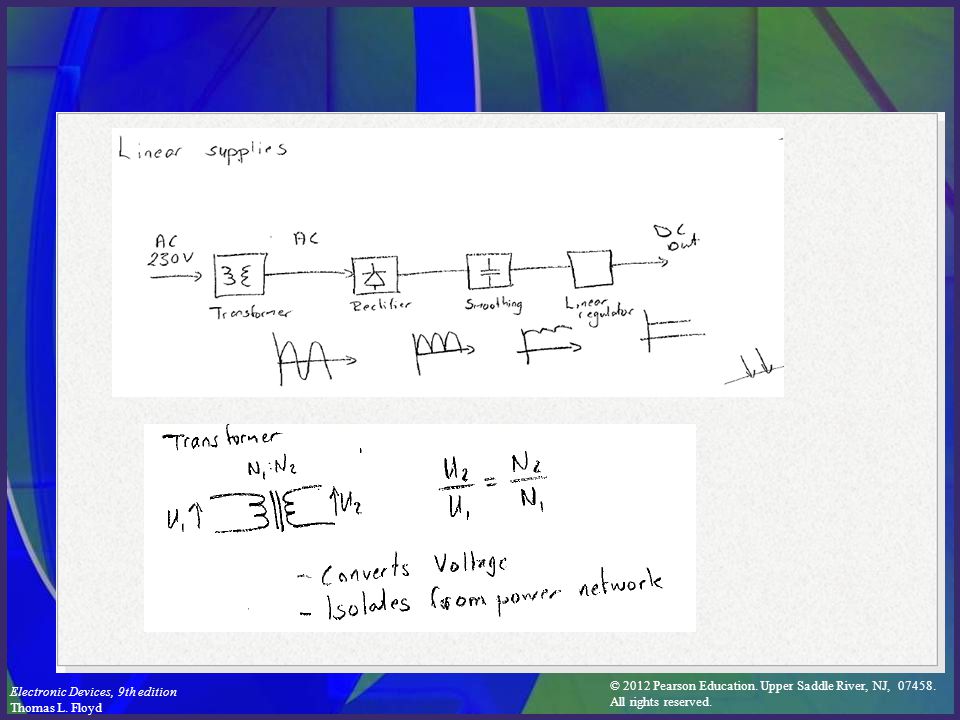 Linear supplies
AC
230V
AC
DC
out
Transformer
Rectifier
Smoothing
Linear
regulator
Transformer
N1:N2
U1
U2
U2/U1 = N2/N1
- Converts Voltage
- Isolates from power network
Electronic Devices, 9th edition
Thomas L. Floyd
© 2012 Pearson Education. Upper Saddle River, NJ, 07458.
All rights reserved.